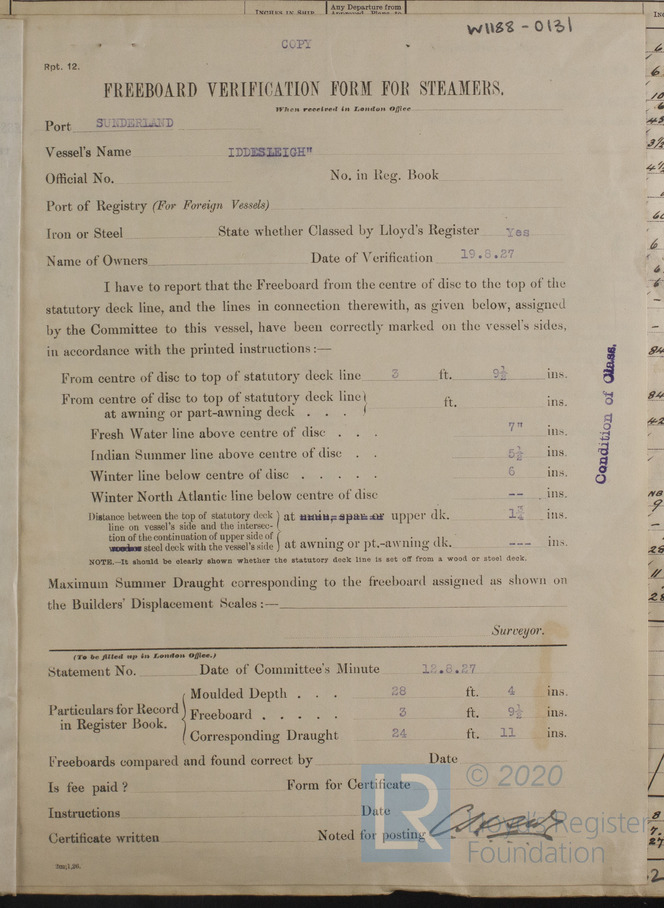 INCHES IN SHIP.
Any Departure from
W1188-0131
COPY
Rpt. 12.
FREEBOARD VERIFICATION FORM FOR STEAMERS.
When received in London Office
Port SUNDERLAND
Vessel's Name IDDESLEIGH"
Official No. No. in Reg. Book
Port of Registry (For Foreign Vessels)
Iron or Steel State whether Classed by Lloyd's Register Yes
Name of Owners Date of Verification 19.8.27
I have to report that the Freeboard from the centre of disc to the top of the
statutory deck line, and the lines in connection therewith, as given below, assigned
by the Committee to this vessel, have been correctly marked on the vessel's sides,
in accordance with the printed instructions :—
From centre of disc to top of statutory deck line 3 ft. 9½ ins.
From centre of disc to top of statutory deck line
at awning or part-awning deck . . . ft. ins.
Fresh Water line above centre of disc . . . 7" ins.
Indian Summer line above centre of disc . . 5½ ins.
Winter line below centre of disc . . . . . 6 ins.
Winter North Atlantic line below centre of disc -- ins.
Distance between the top of statutory deck
line on vessel's side and the intersec-
tion of the continuation of upper side of
wooden steel deck with the vessel's side
at main, spar or upper dk. 1¾ ins.
at awning or pt.-awning dk. --- ins.
NOTE.—It should be clearly shown whether the statutory deck line is set off from a wood or steel deck.
Maximum Summer Draught corresponding to the freeboard assigned as shown on
the Builders' Displacement Scales :—
Surveyor.
Condition of Class.
(To be filled up in London Office.)
Statement No. Date of Committee's Minute 12.8.27
Particulars for Record
in Register Book.
Moulded Depth . . . 28 ft. 4 ins.
Freeboard . . . . . 3 ft. 9½ ins.
Corresponding Draught 24 ft. 11 ins.
Freeboards compared and found correct by Date
Is fee paid ? Form for Certificate
Instructions Date
Certificate written Noted for posting
LR
© 2020
Lloyd's Register
Foundation